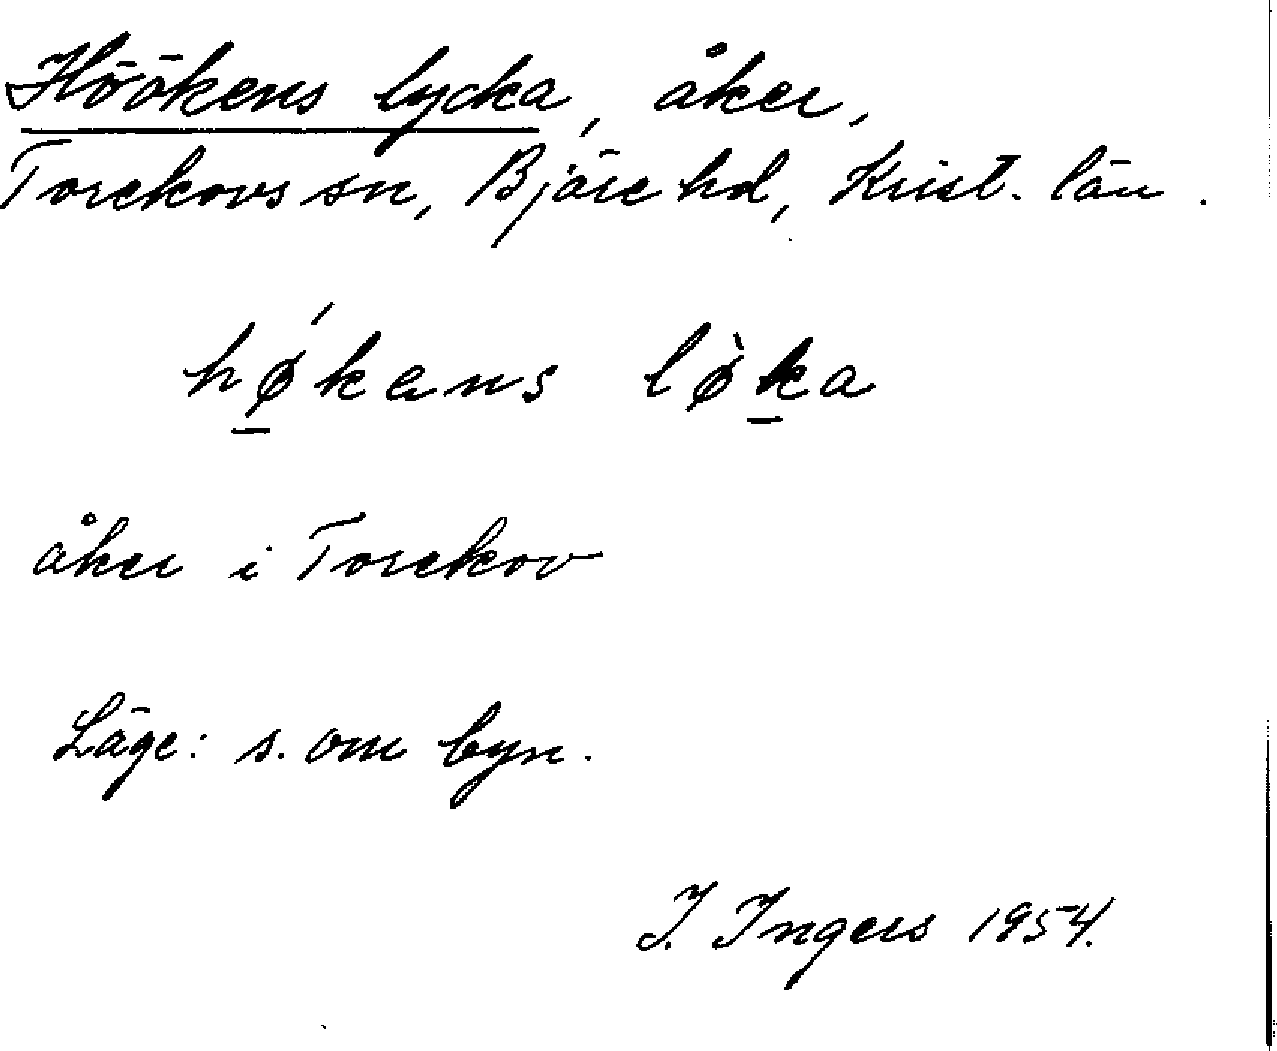 Höökens lycka, åker,
Torekovs sn, Bjäre hd, Krist. län.
hǿ̲kens lø̀k̲a
åker i Torekov
Läge: s. om byn.
I. Ingers 1954.